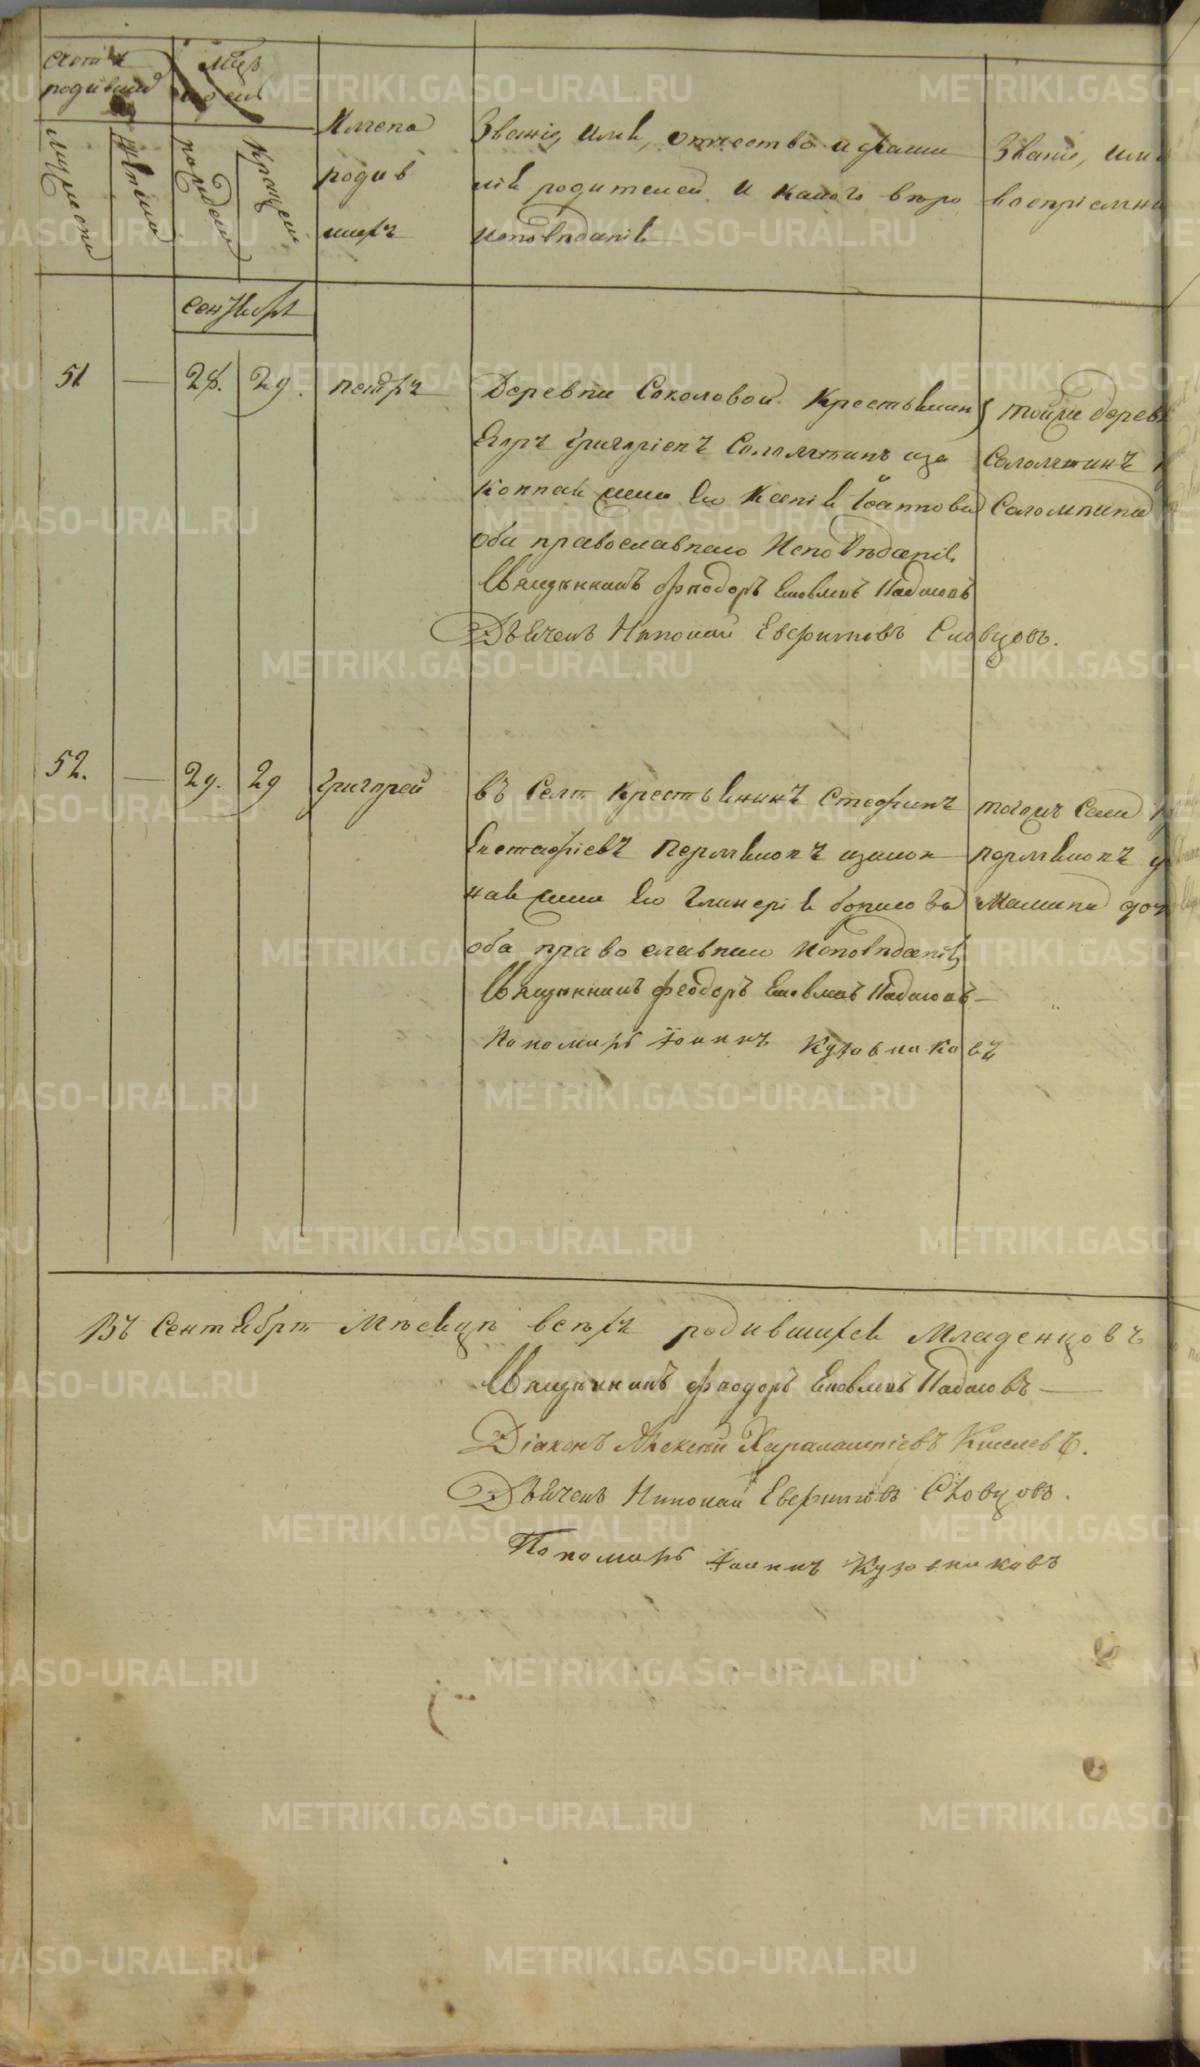 счетъ родивших
Мцъ
Имена родив шихъ
Званіе, имя, отчество и фами лія родителей и какого вѣро исповѣданія
Званіе, имя воспріемни
мужеска
женска
рожденія
крещенія
сентября
51 — 28. 29. Петръ
Деревни Соколовой Крестьянин
Егоръ Григоріевъ Саломатинъ иза
конная жена его Ксенія Іоаннова
оба православнаго исповѣданія
Священникъ Феодоръ Яковлевъ
Дьячекъ Николай Словцовъ.
тойже дерев
Саломатинъ
Саломатина
52. — 29. 29 Григорей
въ селѣ крестьянинъ Стефанъ
Евстафіевъ Пермяковъ изакон
ная жена его Гликерія Борисова
оба православнаго исповѣданія
Священникъ Феодоръ Яковлевъ
Пономарь Іоаннъ Кузовниковъ
тогожъ села
Пермяковъ
доч
Въ сентябрѣ мѣсяцѣ всѣхъ родившихся младенцовъ
Священникъ Феодоръ Яковлевъ
Діаконъ Алексѣй Харалампіевъ Киселевъ.
Дьячекъ Николай Словцовъ.
Пономарь Іоаннъ Кузовниковъ
METRIKI.GASO-URAL.RU